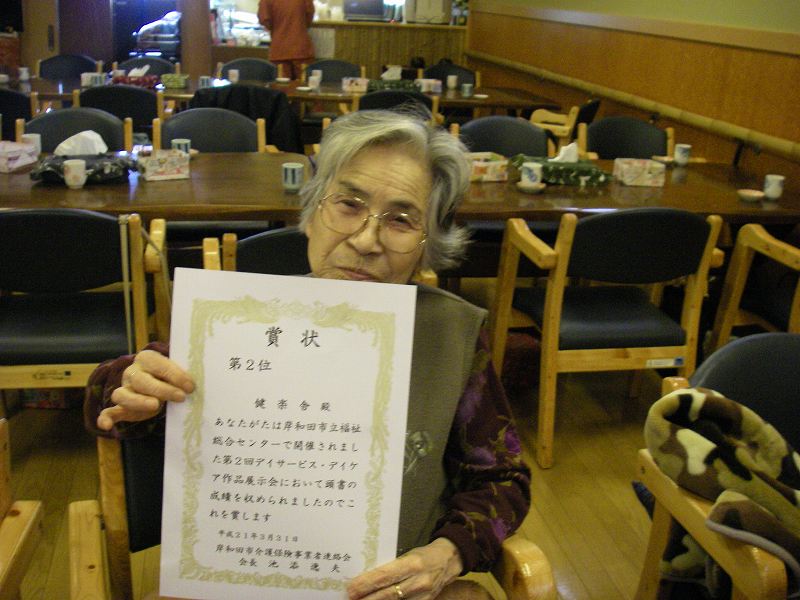 賞状
第2位
健楽舎殿
あなたがたは岸和田市立福祉
総合センターで開催されまし
た第2回デイサービス・デイケ
ア作品展示会において頭書の
成績を収められましたのでこ
れを賞します
平成21年3月31日
岸和田市介護保険事業者連絡会
会長 池添逸夫